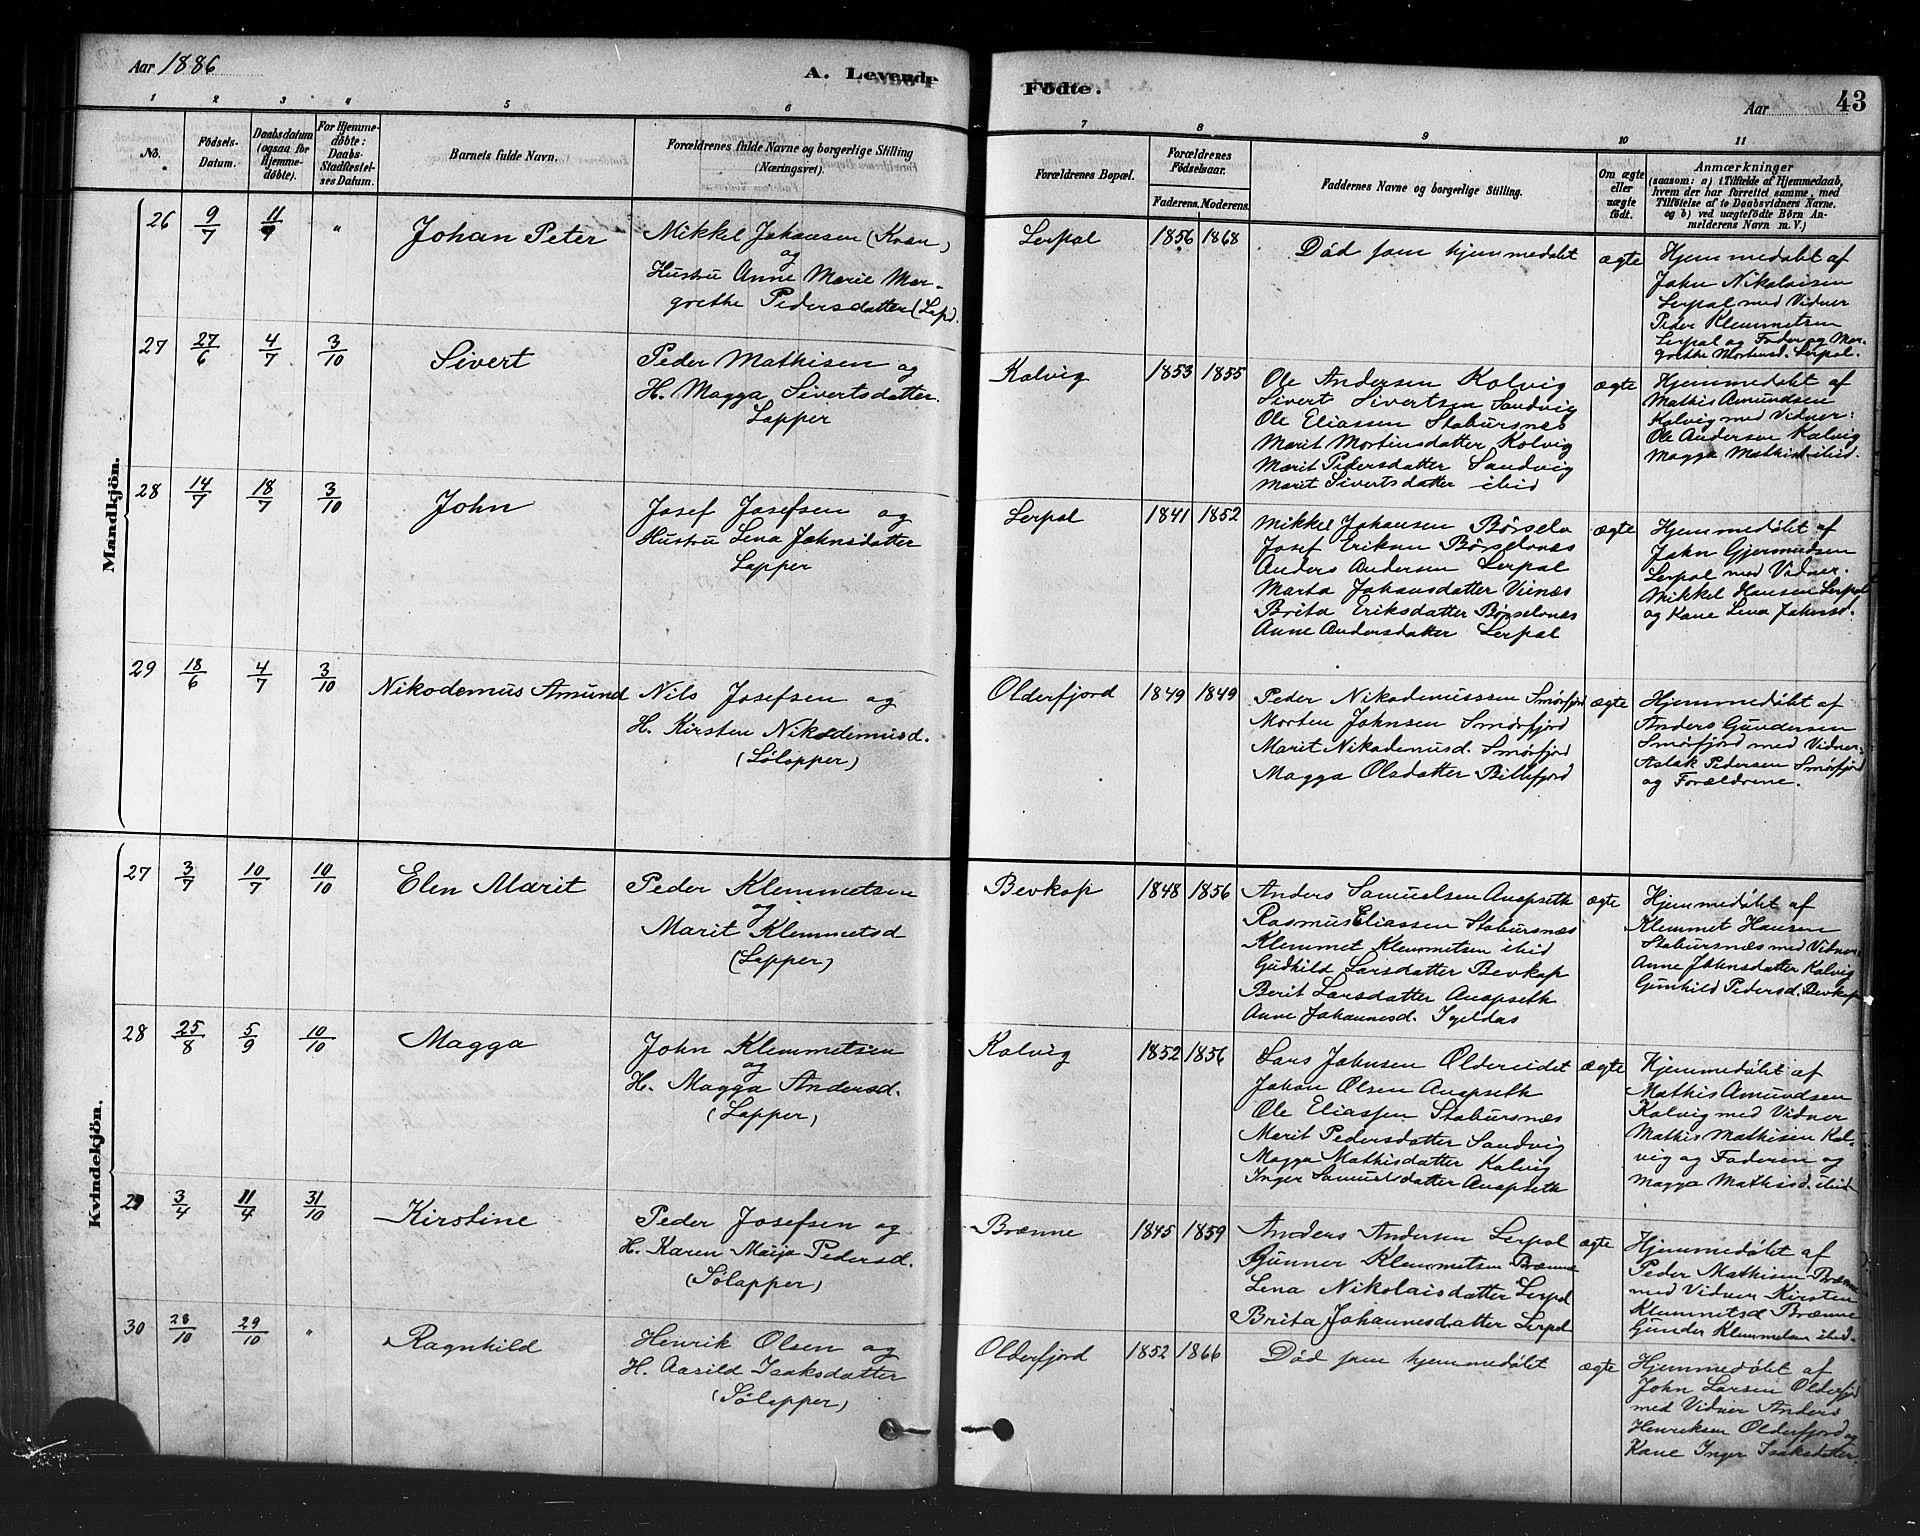 Aar 1886
A. Levende
Födte.
Aar
43
1 2 3 4 5 6 7 8 9 10 11
No.
Födsels-
Datum.
Daabsdatum
(ogsaa for
Hjemme-
döbte).
For Hjemme-
döbte:
Daabs-
Stadfæstel-
ses Datum.
Barnets fulde Navn.
Forældrenes fulde Navne og borgerlige Stilling
(Næringsvei).
Forældrenes Bopæl.
Forældrenes
Födselsaar.
Faderens. Moderens.
Faddernes Navne og borgerlige Stilling.
Om ægte
eller
uægte
födt.
Anmærkninger
(saasom: a) i Tilfælde af Hjemmedaab,
hvem der har forrettet samme, med
Tilföielse af to Daabsvidners Navne,
og b) ved uægtefödte Börn An-
melderens Navn m. V.)
Mandkjön.
26 9/7 11/7 "
Johan Peter
Mikkel Johansen (Kvæn)
og
Hustru Anne Marie Mar-
grethe Pedersdatter (Lap.)
Lerpol
1856 1868
Död som hjemmedöbt
ægte
Hjemmedöbt af
John Nikolaisen
Lerpol med Vidner
Peder Klemmetsen
Lerpol og Fader og Mar-
grethe Mortensd. Lerpol.
27 27/6 4/7 3/10
Sivert
Peder Mathisen og
H. Magga Sivertsdatter
Lapper
Kolvig
1853 1855
Ole Andersen Kolvig
Sivert Sivertsen Sandvig
Ole Eliassen Stabursnæs
Marit Mortensdatter Kolvig
Marit Pedersdatter Sandvig
Marit Sivertsdatter ibid
ægte
Hjemmedöbt af
Mathis Amundsen
Kolvig med Vidner:
Ole Andersen Kolvig
Magga Mathisd. ibid.
28 14/7 18/7 3/10
John
Josef Josefsen og
Hustru Lena Johnsdatter
Lapper
Lerpol
1841 1852
Mikkel Johansen Börselv
Josef Eriksen Börselvnæs
Anders Andersen Lerpol
Marta Johansdatter Vienæs
Brita Eriksdatter Börselvnæs
Anne Andersdatter Lerpol
ægte
Hjemmedöbt af
John Gjermundsen
Lerpol med Vidner.
Mikkel Hansen Lerpol
og Kone Lena Johnsd.
29 18/6 4/7 3/10
Nikodemus Amund
Nils Josefsen og
H. Kirsten Nikodemusd.
(Sölapper)
Olderfjord
1849 1849
Peder Nikodemussen Smörfjord
Morten Johnsen Smörfjord
Marit Nikodemusd. Smörfjord
Magga Olsdatter Billefjord
ægte
Hjemmedöbt af
Anders Gundersen
Smörfjord med Vidner:
Aslak Pedersen Smörfjord
og Forældrene.
Kvindekjön.
27 3/7 10/7 10/10
Elen Marit
Peder Klemmetsen
og
Marit Klemmetsd
(Lapper)
Bevkop
1848 1856
Anders Samuelsen Avapseth
Rasmus Eliassen Stabursnæs
Klemmet Klemmetsen ibid
Gudhild Larsdatter Bevkop
Berit Larsdatter Avapseth
Anne Johannesd. Igeldas
ægte
Hjemmedöbt af
Klemmet Hansen
Stabursnæs med Vidner
Anne Johnsdatter Kolvig
Gunhild Pedersd. Bevkop
28 25/8 5/9 10/10
Magga
John Klemmetsen
og
H. Magga Andersd.
(Lapper)
Kolvig
1852 1856
Lars Johnsen Oldereidet
Johan Olsen Avapseth
Ole Eliassen Stabursnæs
Marit Pedersdatter Sandvig
Magga Mathisdatter Kolvig
Inger Samuelsdatter Avapseth
ægte
Hjemmedöbt af
Mathis Amundsen
Kolvig med Vidner
Mathis Mathisen Kol-
vig og Faderen og
Magga Mathisd. ibid
29 3/4 11/4 31/10
Kirstine
Peder Josefsen og
H. Karen Maija Pedersd.
(Sölapper)
Brænne
1845 1859
Anders Andersen Lerpol
Gunner Klemmetsen Brænne
Lena Nikolaisdatter Lerpol
Brita Johannesdatter Lerpol
ægte
Hjemmedöbt af
Peder Mathisen Brænne
med Vidner Kirsten
Klemmetsd Brænne
Gunder Klemmetsen ibid.
30 28/10 29/10 "
Ragnhild
Henrik Olsen og
H. Aasild Isaksdatter
(Sölapper)
Olderfjord
1852 1866
Död som hjemmedöbt
ægte
Hjemmedöbt af
John Larsen Olderfjord
med Vidner Anders
Henriksen Olderfjord og
Kone Inger Isaksdatter.